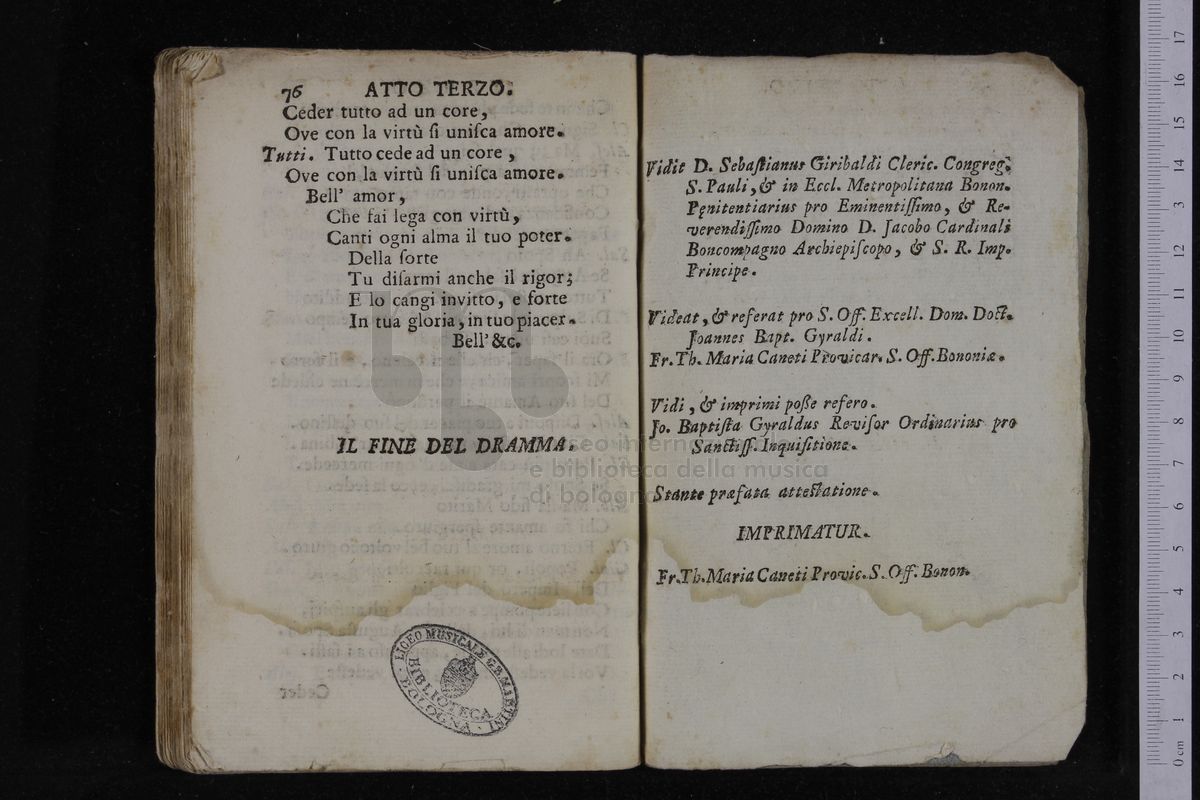 76 ATTO TERZO.
Ceder tutto ad un core,
Ove con la virtù ſi uniſca amore.
Tutti. Tutto cede ad un core,
Ove con la virtù ſi uniſca amore.
Bell' amor,
Che fai lega con virtù,
Canti ogni alma il tuo poter.
Della ſorte
Tu diſarmi anche il rigor;
E lo cangi invitto, e forte
In tua gloria, in tuo piacer.
Bell' &c.
IL FINE DEL DRAMMA.
LICEO MUSICALE G.B. MARTINI
BIBLIOTECA
BOLOGNA
Vidit D. Sebaſtianus Giribaldi Cleric. Congreg.
S. Pauli, & in Eccl. Metropolitana Bonon.
Pęnitentiarius pro Eminentiſſimo, & Re-
verendiſſimo Domino D. Jacobo Cardinali
Boncompagno Archiepiſcopo, & S. R. Imp.
Principe.
Videat, & referat pro S. Off. Excell. Dom. Doct.
Joannes Bapt. Gyraldi.
Fr. Th. Maria Caneti Provicar. S. Off. Bononiæ.
Vidi, & imprimi poſſe refero.
Jo. Baptiſta Gyraldus Reviſor Ordinarius pro
Sanctiſſ. Inquiſitione.
Stante præfata atteſtatione.
IMPRIMATUR.
Fr. Th. Maria Caneti Provic. S. Off. Bonon.
museo internazionale
e biblioteca della musica
di bologna
17
16
15
14
13
12
11
10
9
8
7
6
5
4
3
2
1
0 cm